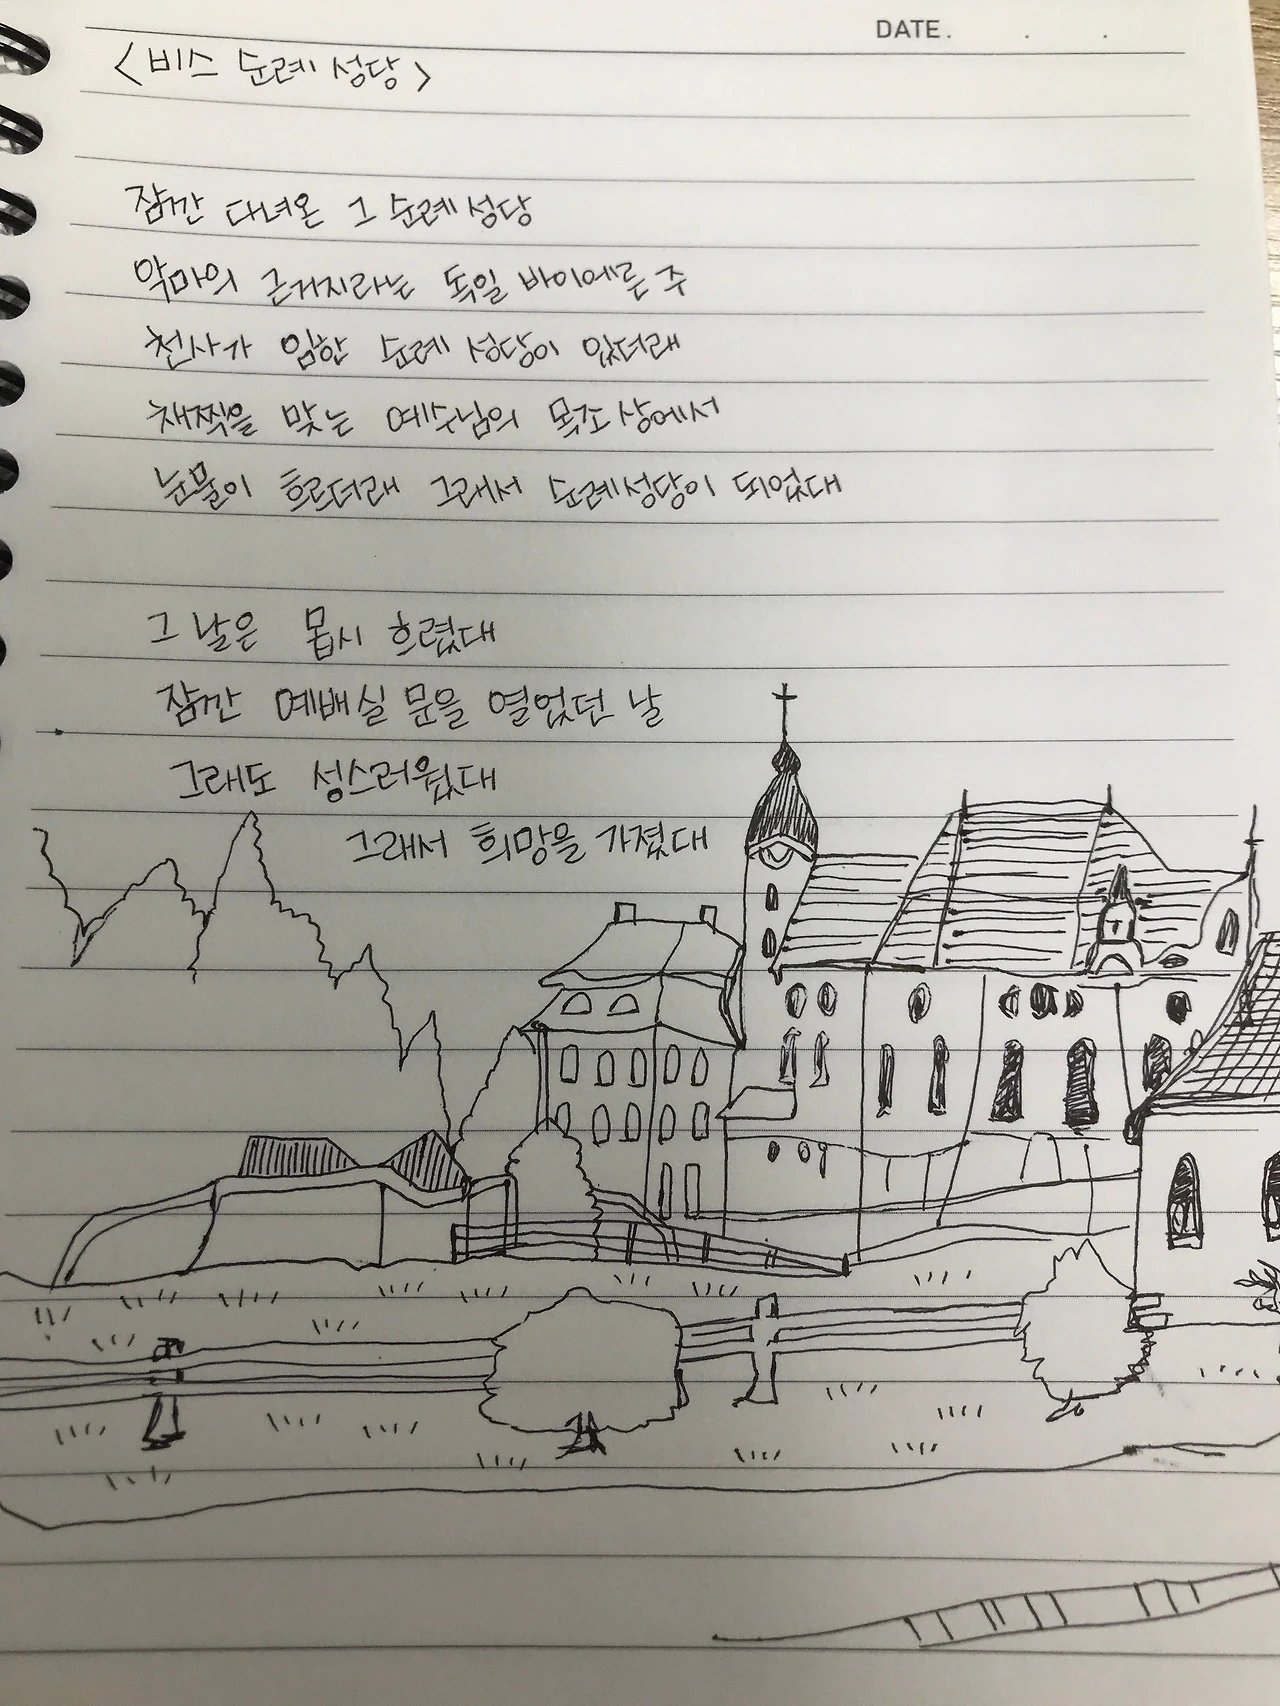 DATE. . .
<비스 순례 성당>
잠깐 다녀온 그 순례 성당
악마의 근거지라는 독일 바이에른 주
천사가 임한 순례 성당이 있더래
채찍을 맞는 예수님의 목조상에서
눈물이 흐르더래 그래서 순례성당이 되었대
그 날은 몹시 흐렸대
잠깐 예배실 문을 열었던 날
그래도 성스러웠대
그래서 희망을 가졌대